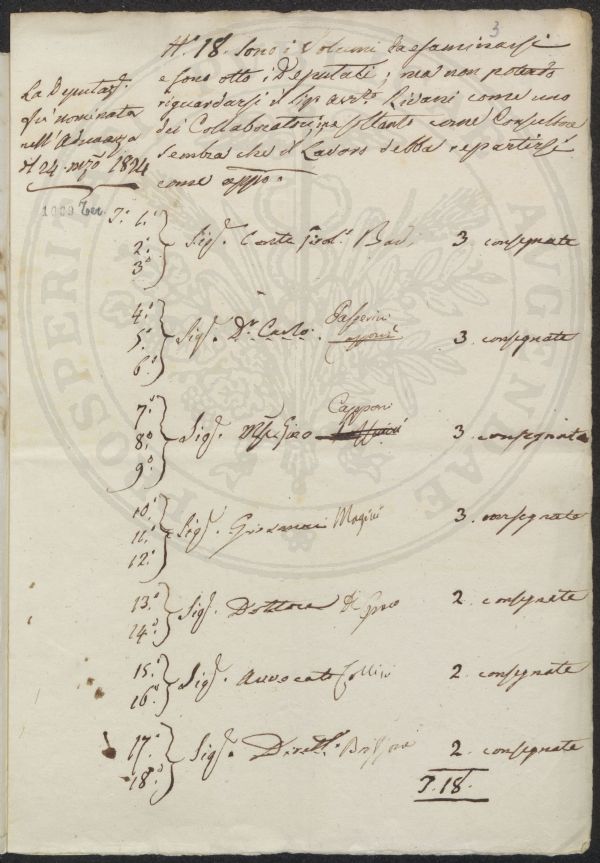 3
N. 18. sono i Volumi da esaminarsi
e sono otto i Deputati; ma non potendo
riguardarsi il Sig. Avv. Rivani come uno
dei Collaboratori, ma soltanto come Consultore
sembra che il Lavoro debba repartirsi
come appo.
La Deputaz.
fu nominata
nell'Adunanza
24 1824
1. 2. 3. Sig. Conte 3 consegnate
4. 5. 6. Sig. Dr. Carlo Passerini 3 consegnate
7. 8. 9. Sig. Capponi 3 consegnate
10. 11. 12. Sig. Giovanni Magini 3 consegnate
13. 14. Sig. Dottore Del Greco 2 consegnate
15. 16. Sig. Avvocato Collini 2 consegnate
17. 18. Sig. Dirett. 2 consegnate
18.
PROSPERITATI AUGENDAE